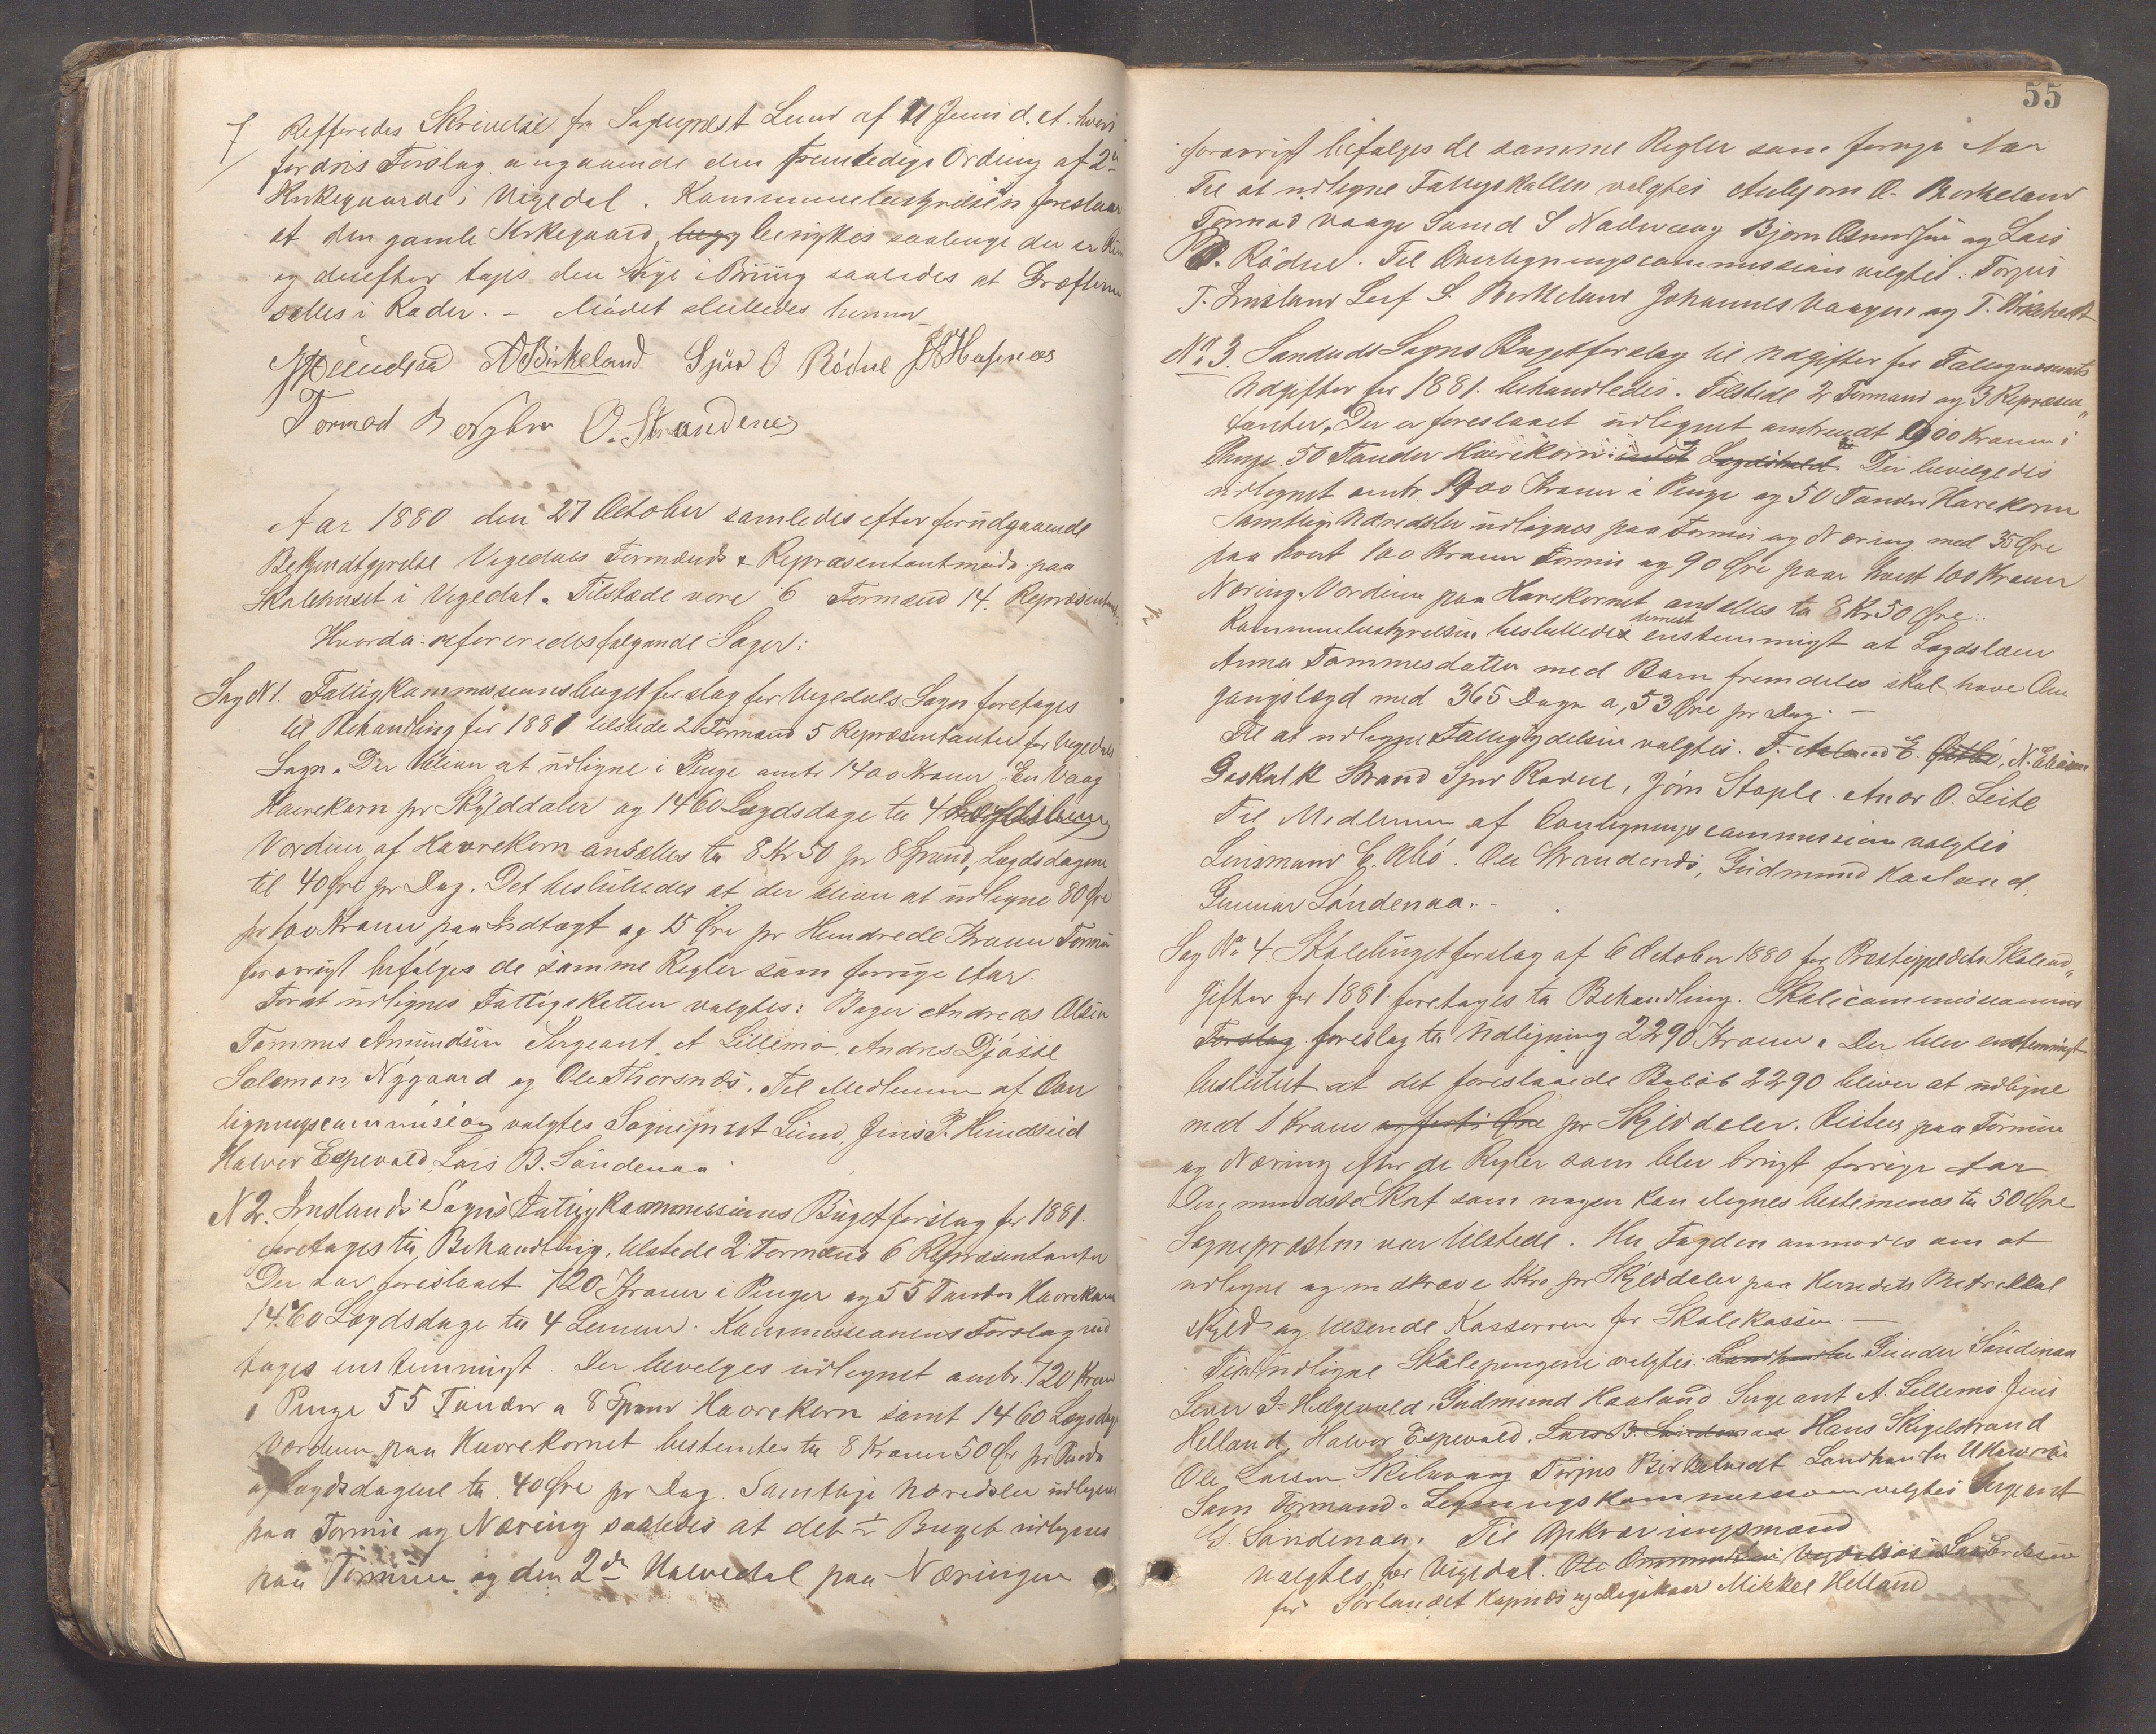 7/ Refferedes Skrivelse fra Sognepræst Lund af 11 Juni d. A. hvori
fordres Forslag angaaende den fremtedige Ordning af 2de
Kirkegaarde i Vigedal. Kommunebestyrelsen foreslaar
at den gamle Kirkegaard benyttes saalenge der er
og derefter tages den Nye i Brüg saaledes at Græfterne
settes i Rader. – Mødet sluttedes hermed
A Birkeland Sjur O Rödne
Tormod B Nybru O. Strandenes
Aar 1880 den 27 October samledes efter forudgaaende
Bekjendtgjørelse Vigedals Formænds & Repræsentantmøde paa
Skolehuset i Vigedal. Tilstæde vore 6 Formænd 14. Repræsentanter
Hvorda refereredes følgende Sager:
Sag N1. Fattigkommissionsbugetforslag for Vigedals Sogn foretages
til Behandling for 1881 tilstede 2 Formænd 5 Repræsentanter for Vigedals
Sogn. Der bliver at üdligne i Penge omtr 1400 Kroner En Vaag
Havrekorn pr Skylddaler og 1460 Lægdsdage til 4
Verdien af Havrekorn ansættes til 8 Kr 50 pr 8 Spand, Lægdsdagene
til 40 Øre pr Dag. Det besluttedes at der bliver at üdligne 80 Øre
pr 100 Kroner paa Indtægt og 15 Øre pr Hundrede Kroner Formue
forøvrigt befølges de samme Regler som forrige Aar.
Forat üdlignes Fattigskatten valgtes: Bager Andreas Olsen
Tommes Amundsen Sergeant A Lillemo, Andres Djösse
Salamon Nygaard og Ole Thorsnæs. Til Medlemm af Over
ligningscommission valgtes Sognepræst Lund, Jens P. Hundseid
Halvor Espevold Lars B. Söndenaa
N 2. Imslands Sogns Fattigkommissions Bügetforslag for 1881.
foretages til Behandling, tilstede 2 Formænd 6 Repræsentanter
Der var foreslaaet 720 Kroner i Penger og 55 Tønder Havrekorn
1460 Lægdsdage til 4 Lemmer. Kommissionens Forslag ved
toges enstemmigt Der bevelges üdlignet omtr. 720 Kroner
i Penge 55 Tönder a 8 Spand Havrekorn samt 1460 Lægsdage
Værdien paa Havrekornet bestemtes til 8 Kroner 50 Ør pr Tønde
og Lægdsdagene til 40 Øre pr Dag. Samtlige Naredsler üdlignes
paa Formue og Næring saaledes at det ½ Buget üdlignes
paa Formüe og den 2den Halvedel paa Næringen
55
forøvrigt befølges de samme Regler som forrige Aar
Til at udligne Fattigskatten valgtes Aubjørn O. Birkeland
Tormod Vaage Gaud S Nadvæng Bjørn Osmundsen og Lars
O. Rödne. Til Overligningscommission valgtes: Torjus
T. Imsland Leif S. Birkeland Johannes Vaagen og T.
No 3. Sandeids Sogns Bugetforslag til Udgifter for Fattigvæsenets
Udgifter for 1881. behandledes. Tilstede 2 Formænd og 3 Repræsen„
tanter. Der er foreslaaet üdlignet omtrendt 1900 Kroner i
Penge 50 Tønder Havrekorn Der bevilgedes
üdlignet omtr. 1900 Kroner i Penge og 50 Tønder Havrekorn
Samtlige Naredsler üdlignes paa Formue og Næring med 35 Øre
paa hvert 100 Kroner Formue og 90 Øre paa hvert 100 Kroner
Næring. Værdien paa Havrekornet ansettes til 8 Kr 50 Øre:
Kommunebestyrelsen besluttedes enstemmigt at Lægdslem
Anna Tommesdatter med Barn fremdeles skal have Om
gangslægd med 365 Dage a, 53 Øre pr Dag. –
Til at udligne Fattigydelsen valgtes. T. Aaland E. Østbø, N. Eliasen
Goskalk Strand Sjur Rødne, Jørn Staple. Anor O. Leite
Til Medlemm af Overligningscommission valgtes
Lensmand C. Øbø. Ole Strandenæs, Gudmund Kaaland,
Gunnar Söndenaa. –
Sag No 4. Skolebügetforslag af 6 October 1880 for Præstegjeldets Skolend„
gifter for 1881 foretages til Behandling. Skolecommissionens
Forslag foreslog til Udligning 2290 Kroner. Der blev enstemmigt
besluttet at det foreslaaede Beløb 2290 bliver at üdligne
med 1 Krone og forti Øre pr Skylddaler. Resten paa Formue
og Næring efter de Regler som blev brugt forrige Aar
Den mindste Skat som nogen kan ilignes bestemmes til 50 Øre
Sognepræsten var tilstede. Hr Fogden anmodes om at
üdligne og indkræve 1 Kro pr Skylddaler paa Herredets Matrikkul
Skyld og tilsende Kassereren for Skolekassen. –
Til at üdligne Skolepengene valgtes. Landhandler Gunder Söndenaa
Sever J. Helgevold, Gudmund Kaaland Sergeant A. Lillemo Jens
Helland, Halvor Espevold, Lars B. Söndenaa Hans Skigelstrand
Ole Larsen Skilevang Torjus Birketvedt Landhandler
Som Formand i Legningskommission valgtes Sergeant
G. Söndenaa. Til Opkrævningsmænd
valgtes for Vigedal. Ole Ommundsen Lars Ericksen
for Sörlandet Mikkel Helland